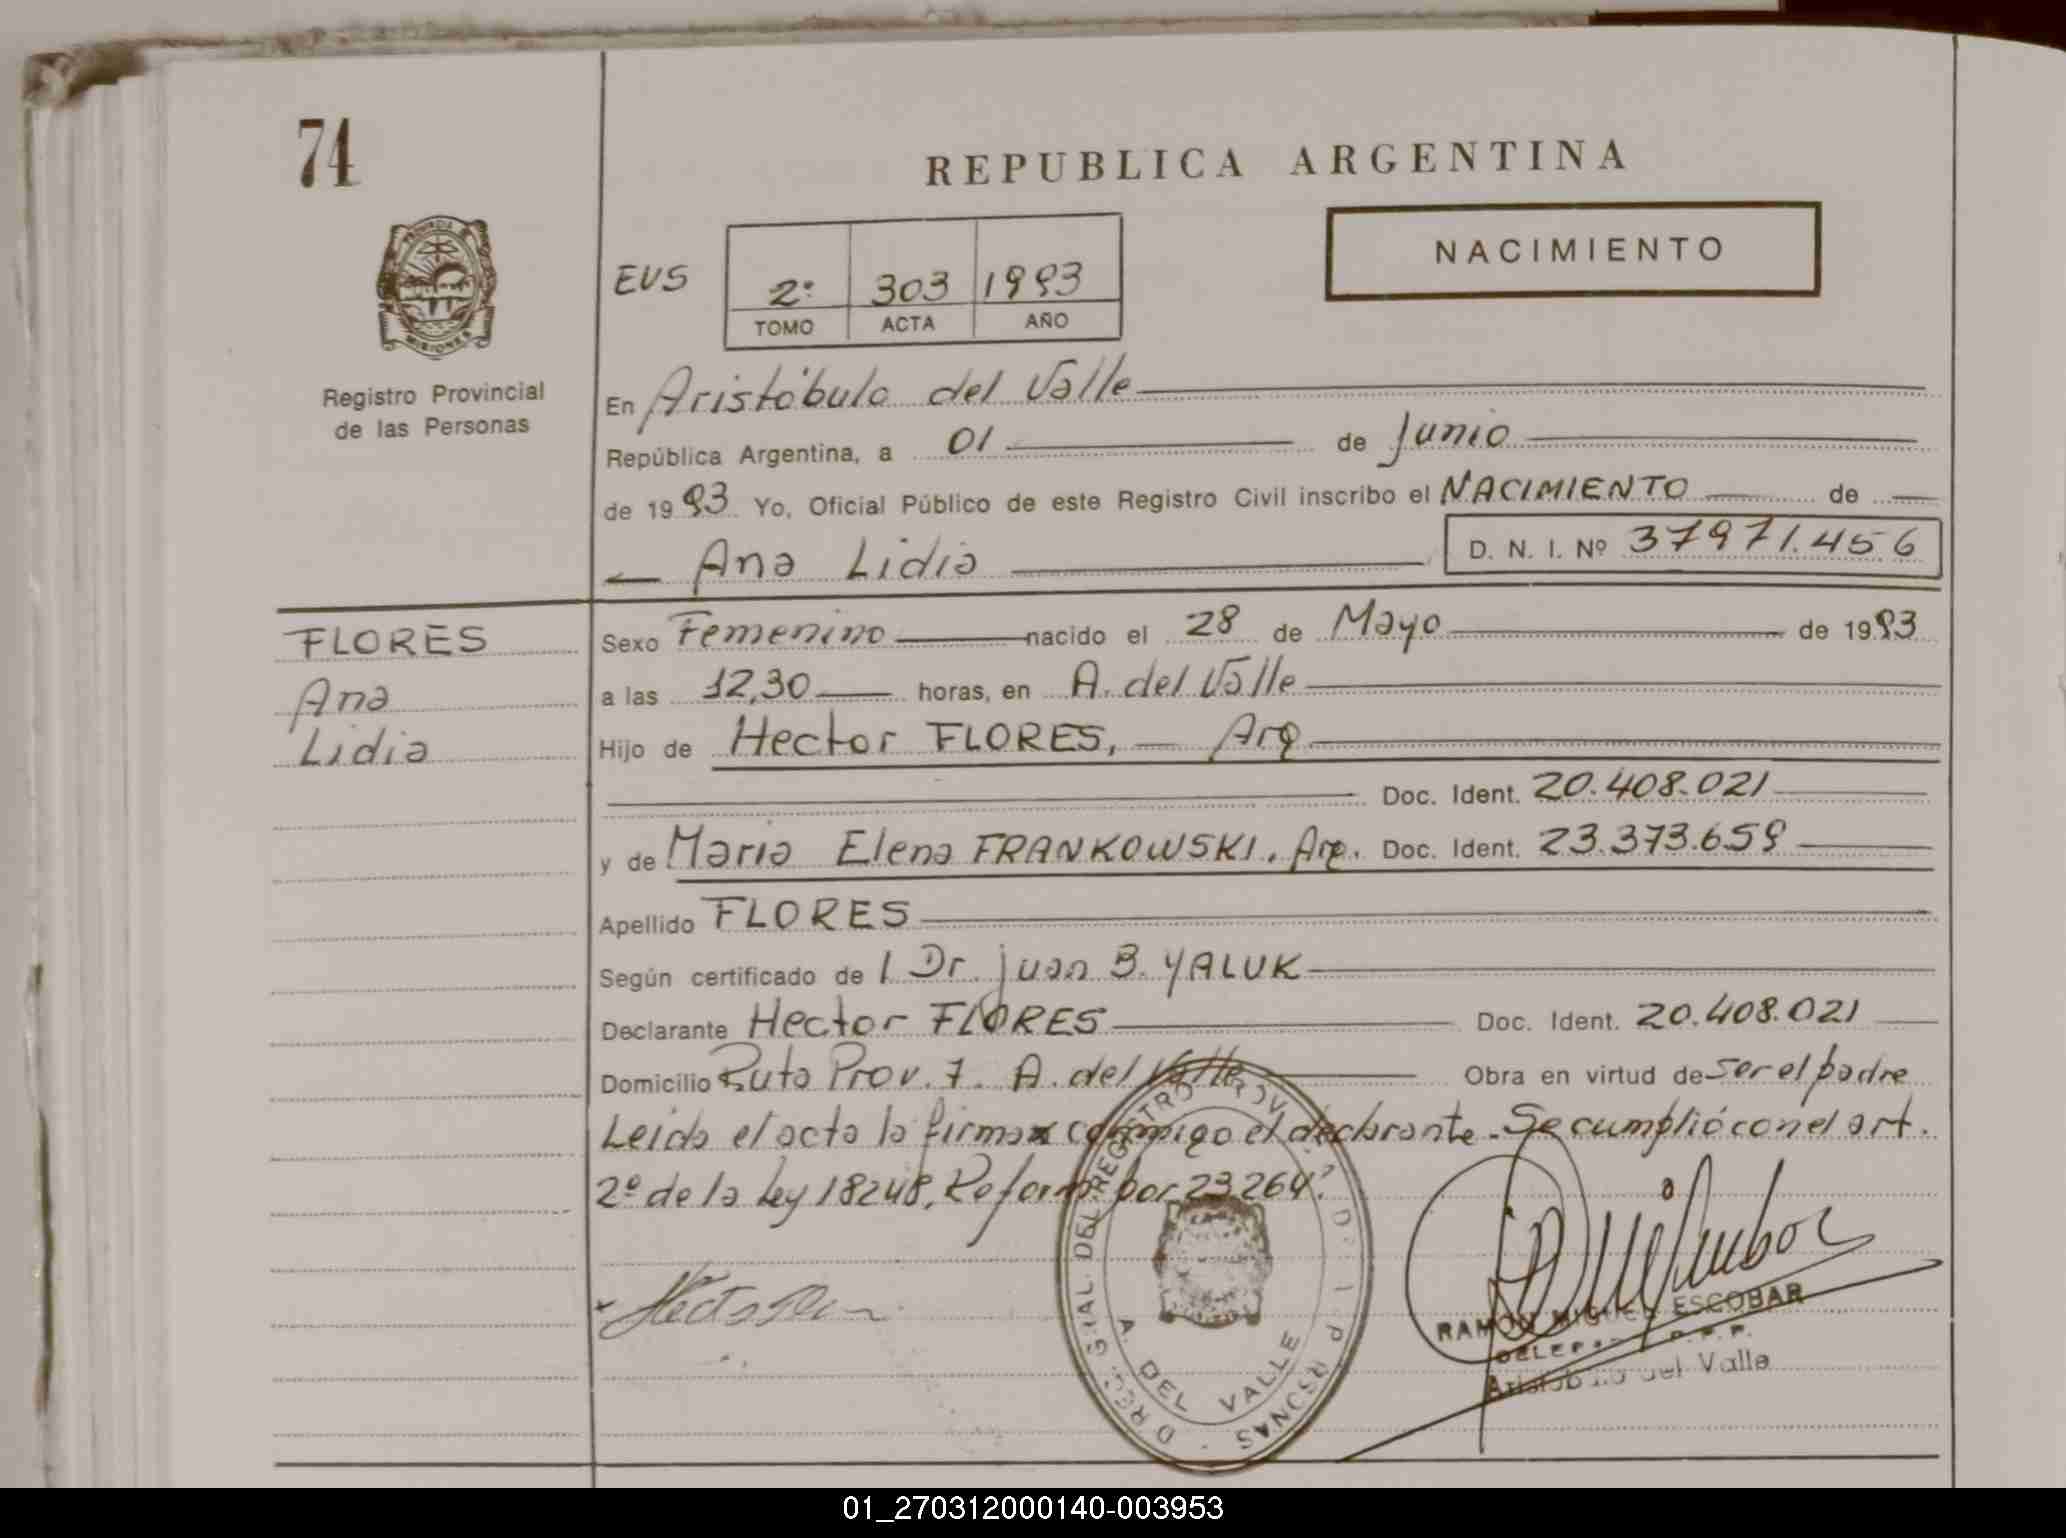 74
REPUBLICA ARGENTINA
NACIMIENTO
EVS
2º 303 1993
TOMO ACTA AÑO
PROVINCIA DE
MISIONES
Registro Provincial
de las Personas
En Aristóbulo del Valle
República Argentina, a 01 de Junio
de 1993 Yo, Oficial Público de este Registro Civil inscribo el NACIMIENTO de
Ana Lidia
D. N. I. Nº 37971.456
FLORES
Ana
Lidia
Sexo Femenino nacido el 28 de Mayo de 1993
a las 12,30 horas, en A. del Valle
Hijo de Hector FLORES, Arg
Doc. Ident. 20.408.021
y de Maria Elena FRANKOWSKI. Arg. Doc. Ident. 23.373.659
Apellido FLORES
Según certificado de l Dr. Juan B. YALUK
Declarante Hector FLORES Doc. Ident. 20.408.021
Domicilio Ruta Prov. 7. A. del Valle Obra en virtud de ser el padre
Leida el acta la firma conmigo el declarante. Se cumplió con el art.
2º de la Ley 18248, Reform por 23264.
GRAL DEL REGISTRO PROV. PERSONAS
A. DEL VALLE
RAMON MIGUEL ESCOBAR
Aristobulo del Valle
01_270312000140-003953